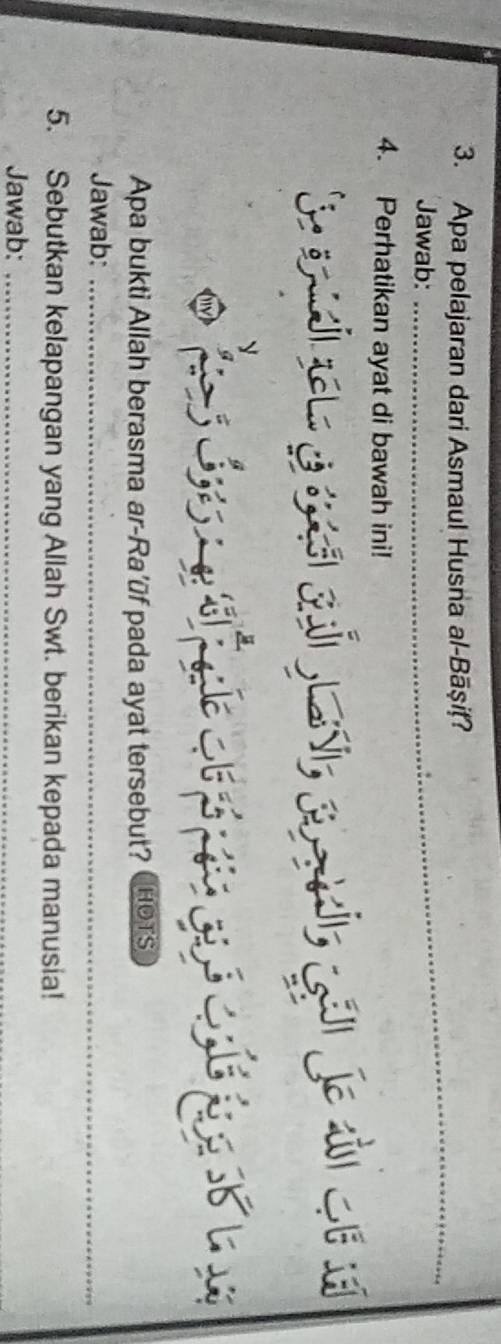 3. Apa pelajaran dari Asmaul Husna al-Bāṣiṭ?
Jawab: ........................................................................
4. Perhatikan ayat di bawah ini!
لَقَدْ تَّابَ اللّٰهُ عَلَى النَّبِيِّ وَالْمُهٰجِرِيْنَ وَالْاَنْصَارِ الَّذِيْنَ اتَّبَعُوْهُ فِيْ سَاعَةِ الْعُسْرَةِ مِنْۢ
بَعْدِ مَا كَادَ يَزِيْغُ قُلُوْبُ فَرِيْقٍ مِّنْهُمْ ثُمَّ تَابَ عَلَيْهِمْۗ اِنَّهٗ بِهِمْ رَءُوْفٌ رَّحِيْمٌۙ ١١٧
Apa bukti Allah berasma ar-Ra'ūf pada ayat tersebut? HOTS
Jawab: ........................................................................
5. Sebutkan kelapangan yang Allah Swt. berikan kepada manusia!
Jawab: ........................................................................